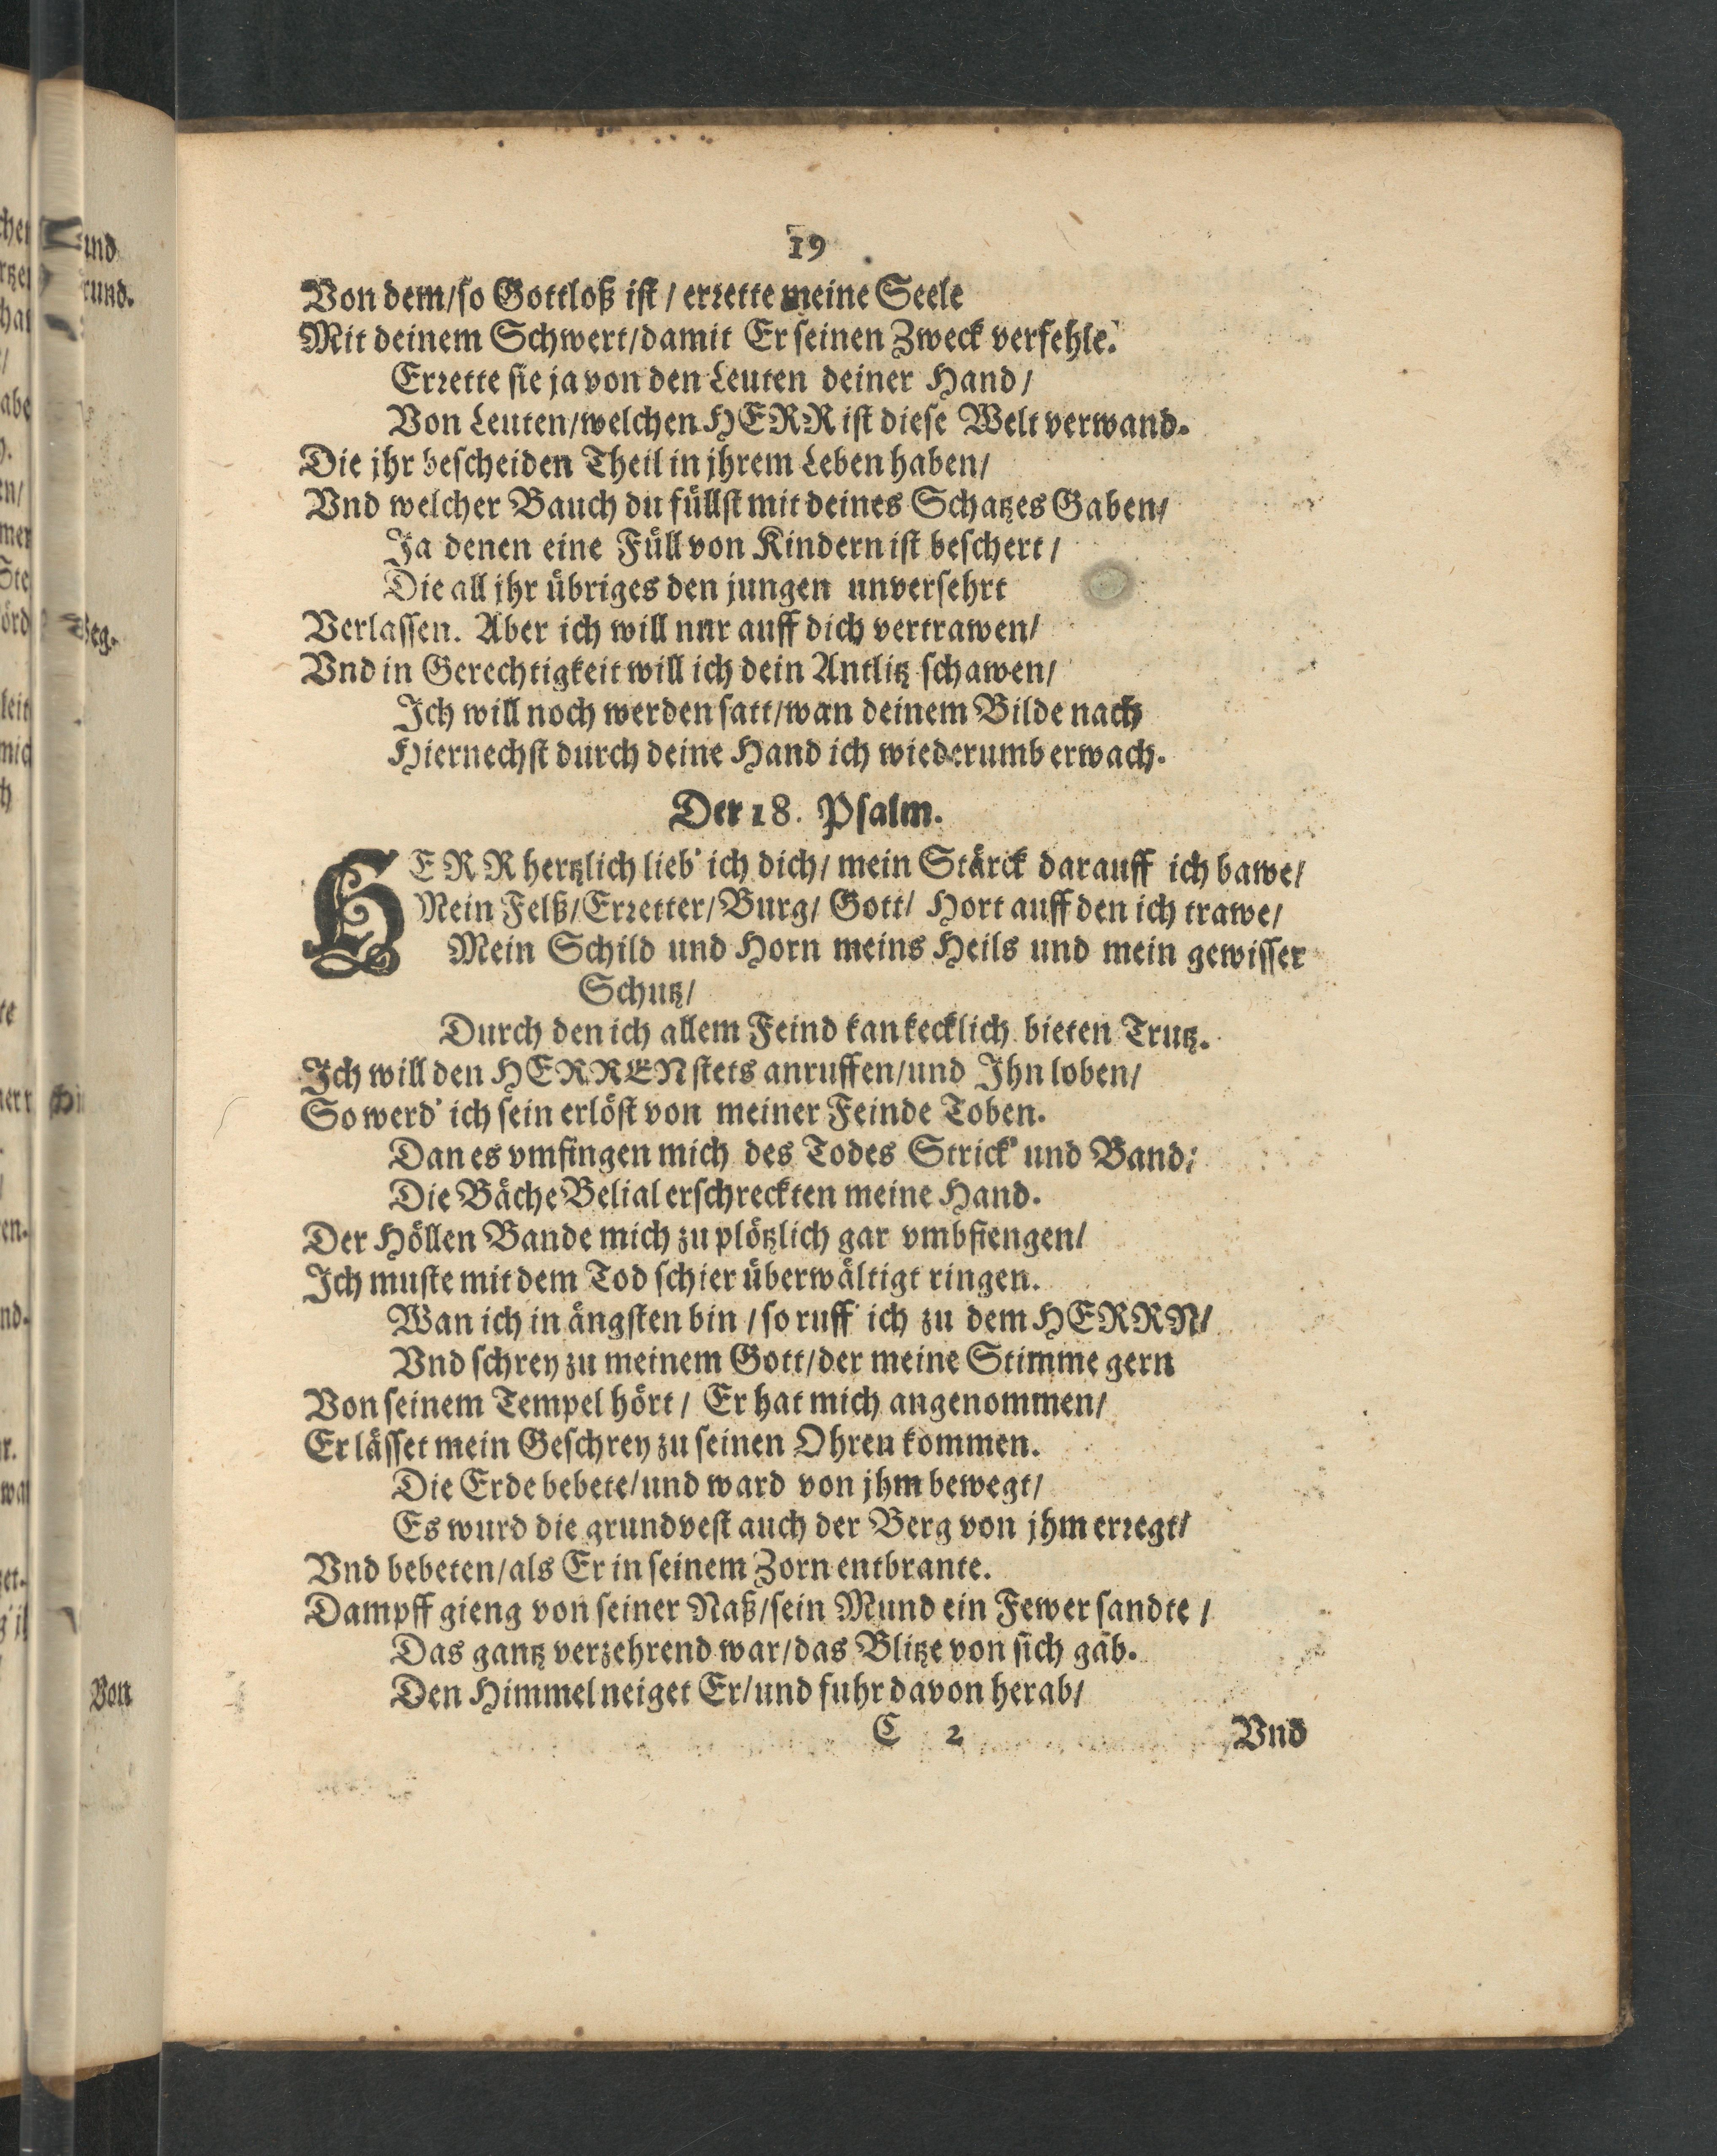 19
Von dem/so Gottloß ist / errette meine Seele
Mit deinem Schwert/damit Er seinen Zweck verfehle.
Errette sie ja von den Leuten deiner Hand/
Von Leuten/welchen HERR ist diese Welt verwand.
Die jhr bescheiden Theil in jhrem Leben haben/
Vnd welcher Bauch du füllst mit deines Schatzes Gaben/
Ja denen eine Füll von Kindern ist beschert/
Die all jhr übriges den jungen unversehrt
Verlassen. Aber ich will nur auff dich vertrawen/
Vnd in Gerechtigkeit will ich dein Antlitz schawen/
Ich will noch werden satt/wan deinem Bilde nach
Hiernechst durch deine Hand ich wiederumb erwach.
Der 18. Psalm.
HERR hertzlich lieb' ich dich/ mein Stärck darauff ich bawe/
Mein Felß/Erretter/Burg/ Gott/ Hort auff den ich trawe/
Mein Schild und Horn meins Heils und mein gewisser
Schutz/
Durch den ich allem Feind kan kecklich bieten Trutz.
Ich will den HERREN stets anruffen/und Ihn loben/
So werd' ich sein erlöst von meiner Feinde Toben.
Dan es vmfingen mich des Todes Strick' und Band;
Die Bäche Belial erschreckten meine Hand.
Der Höllen Bande mich zu plötzlich gar vmbfiengen/
Ich muste mit dem Tod schier überwältigt ringen.
Wan ich in ängsten bin / so ruff' ich zu dem HERRN/
Vnd schrey zu meinem Gott/der meine Stimme gern
Von seinem Tempel hört / Er hat mich angenommen/
Er lässet mein Geschrey zu seinen Ohren kommen.
Die Erde bebete/und ward von jhm bewegt/
Es wurd die grundvest auch der Berg von jhm erregt/
Vnd bebeten/als Er in seinem Zorn entbrante.
Dampff gieng von seiner Naß/sein Mund ein Fewer sandte /
Das gantz verzehrend war/das Blitze von sich gab.
Den Himmel neiget Er/und fuhr davon herab/
C 2 Vnd